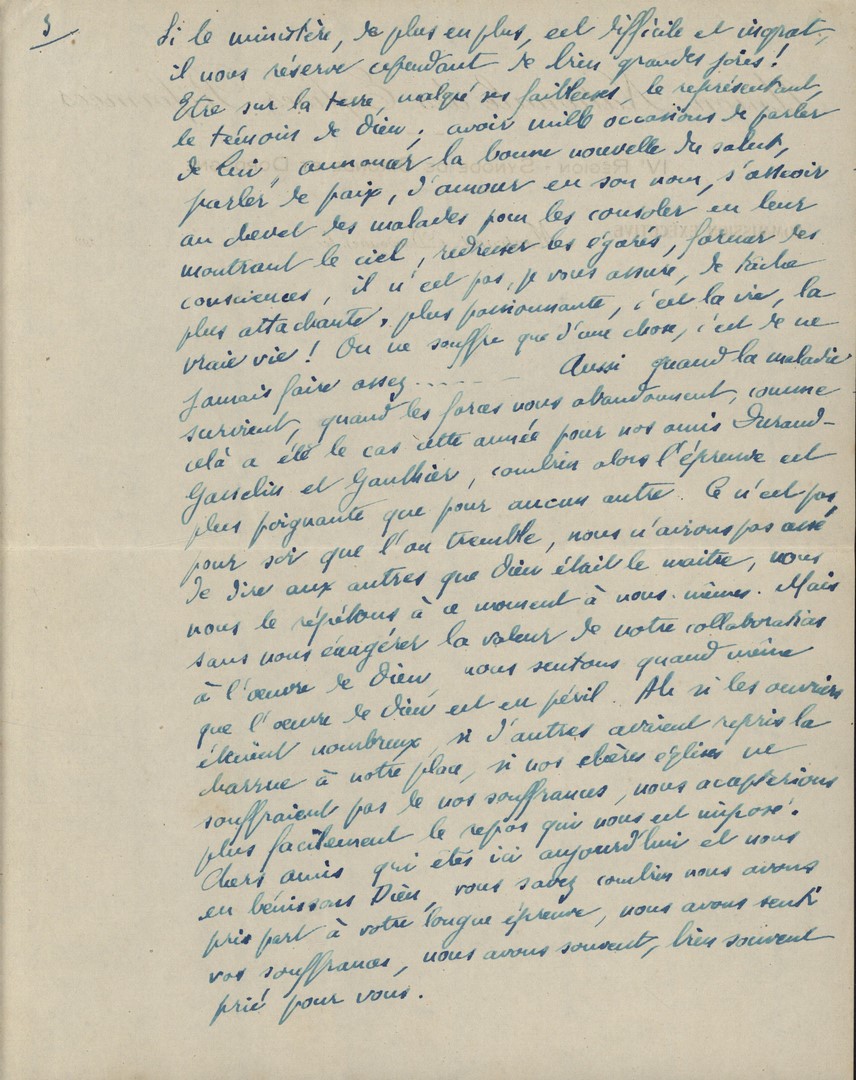 3/
Si le ministère, de plus en plus, est difficile et ingrat,
il nous réserve cependant de bien grandes joies !
Etre sur la terre, malgré ses faiblesses, le représentant,
le témoin de Dieu ; avoir mille occasions de parler
de Lui, annoncer la bonne nouvelle du salut,
parler de paix, d'amour en son nom, s'asseoir
au chevet des malades pour les consoler en leur
montrant le ciel, redresser les égarés, former des
consciences, il n'est pas, je vous assure, de tâche
plus attachante, plus passionnante, c'est la vie, la
vraie vie ! On ne souffre que d'une chose, c'est de ne
jamais faire assez ....... Aussi quand la maladie
survient, quand les forces nous abandonnent, comme
celà a été le cas cette année pour nos amis Durand-
Gasselin et Gauthier, combien alors l'épreuve est
plus poignante que pour aucun autre. Ce n'est pas
pour soi que l'on tremble, nous n'avions pas assé
de dire aux autres que Dieu était le maitre, nous
nous le répétons à ce moment à nous-mêmes. Mais
sans nous éxagérer la valeur de notre collaboration
à l'œuvre de Dieu, nous sentons quand même
que l'œuvre de Dieu est en péril. Ah si les ouvriers
étaient nombreux, si d'autres avaient repris la
charrue à notre place, si nos chères églises ne
souffraient pas de nos souffrances, nous accepterions
plus facilement le repos qui nous est imposé.
Chers amis qui êtes ici aujourd'hui et nous
en bénissons Dieu, vous savez combien nous avons
pris part à votre longue épreuve, nous avons senti
vos souffrances, nous avons souvent, bien souvent
prié pour vous.